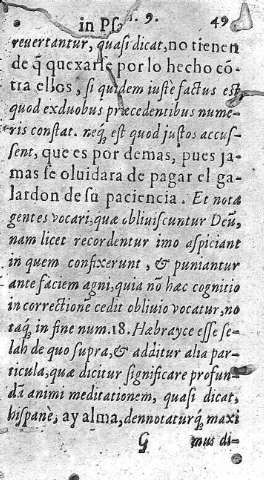 in Ps. 9. 49
revertantur, quasi dicat, no tienen
de q̃ quexarse por lo hecho cõ-
tra ellos, si quidem iustè factus est,
quod exduobus præcedentibus nume-
ris constat. neq; est quod justos accus-
sent, que es por demas, pues ja-
mas se oluidara de pagar el ga-
lardon de su paciencia. Et nota
gentes vocari, quæ obliuiscuntur Deũ,
nam licet recordentur imo aspiciant
in quem confixerunt, & puniantur
ante faciem agni, quia nõ hæc cognitio
in correctionẽ cedit obliuio vocatur, no
taq; in fine num. 18. Hæbrayce esse se-
lah de quo supra, & additur alia par-
ticula, quæ dicitur significare profun-
dã animi meditationem, quasi dicat,
hispanè, ay alma, dennotaturq; maxi
G mus di-